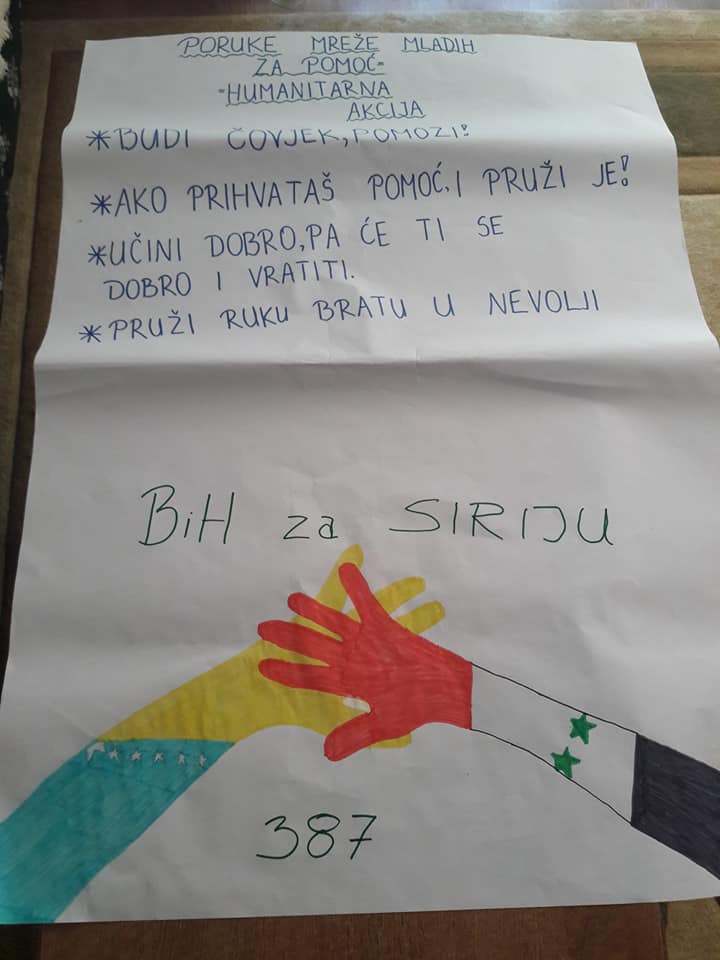 PORUKE MREŽE MLADIH
ZA POMOĆ-
-HUMANITARNA
AKCIJA
*BUDI ČOVJEK, POMOZI!
*AKO PRIHVATAŠ POMOĆ, I PRUŽI JE!
*UČINI DOBRO, PA ĆE TI SE
DOBRO I VRATITI.
*PRUŽI RUKU BRATU U NEVOLJI
BiH za SIRIJU
387